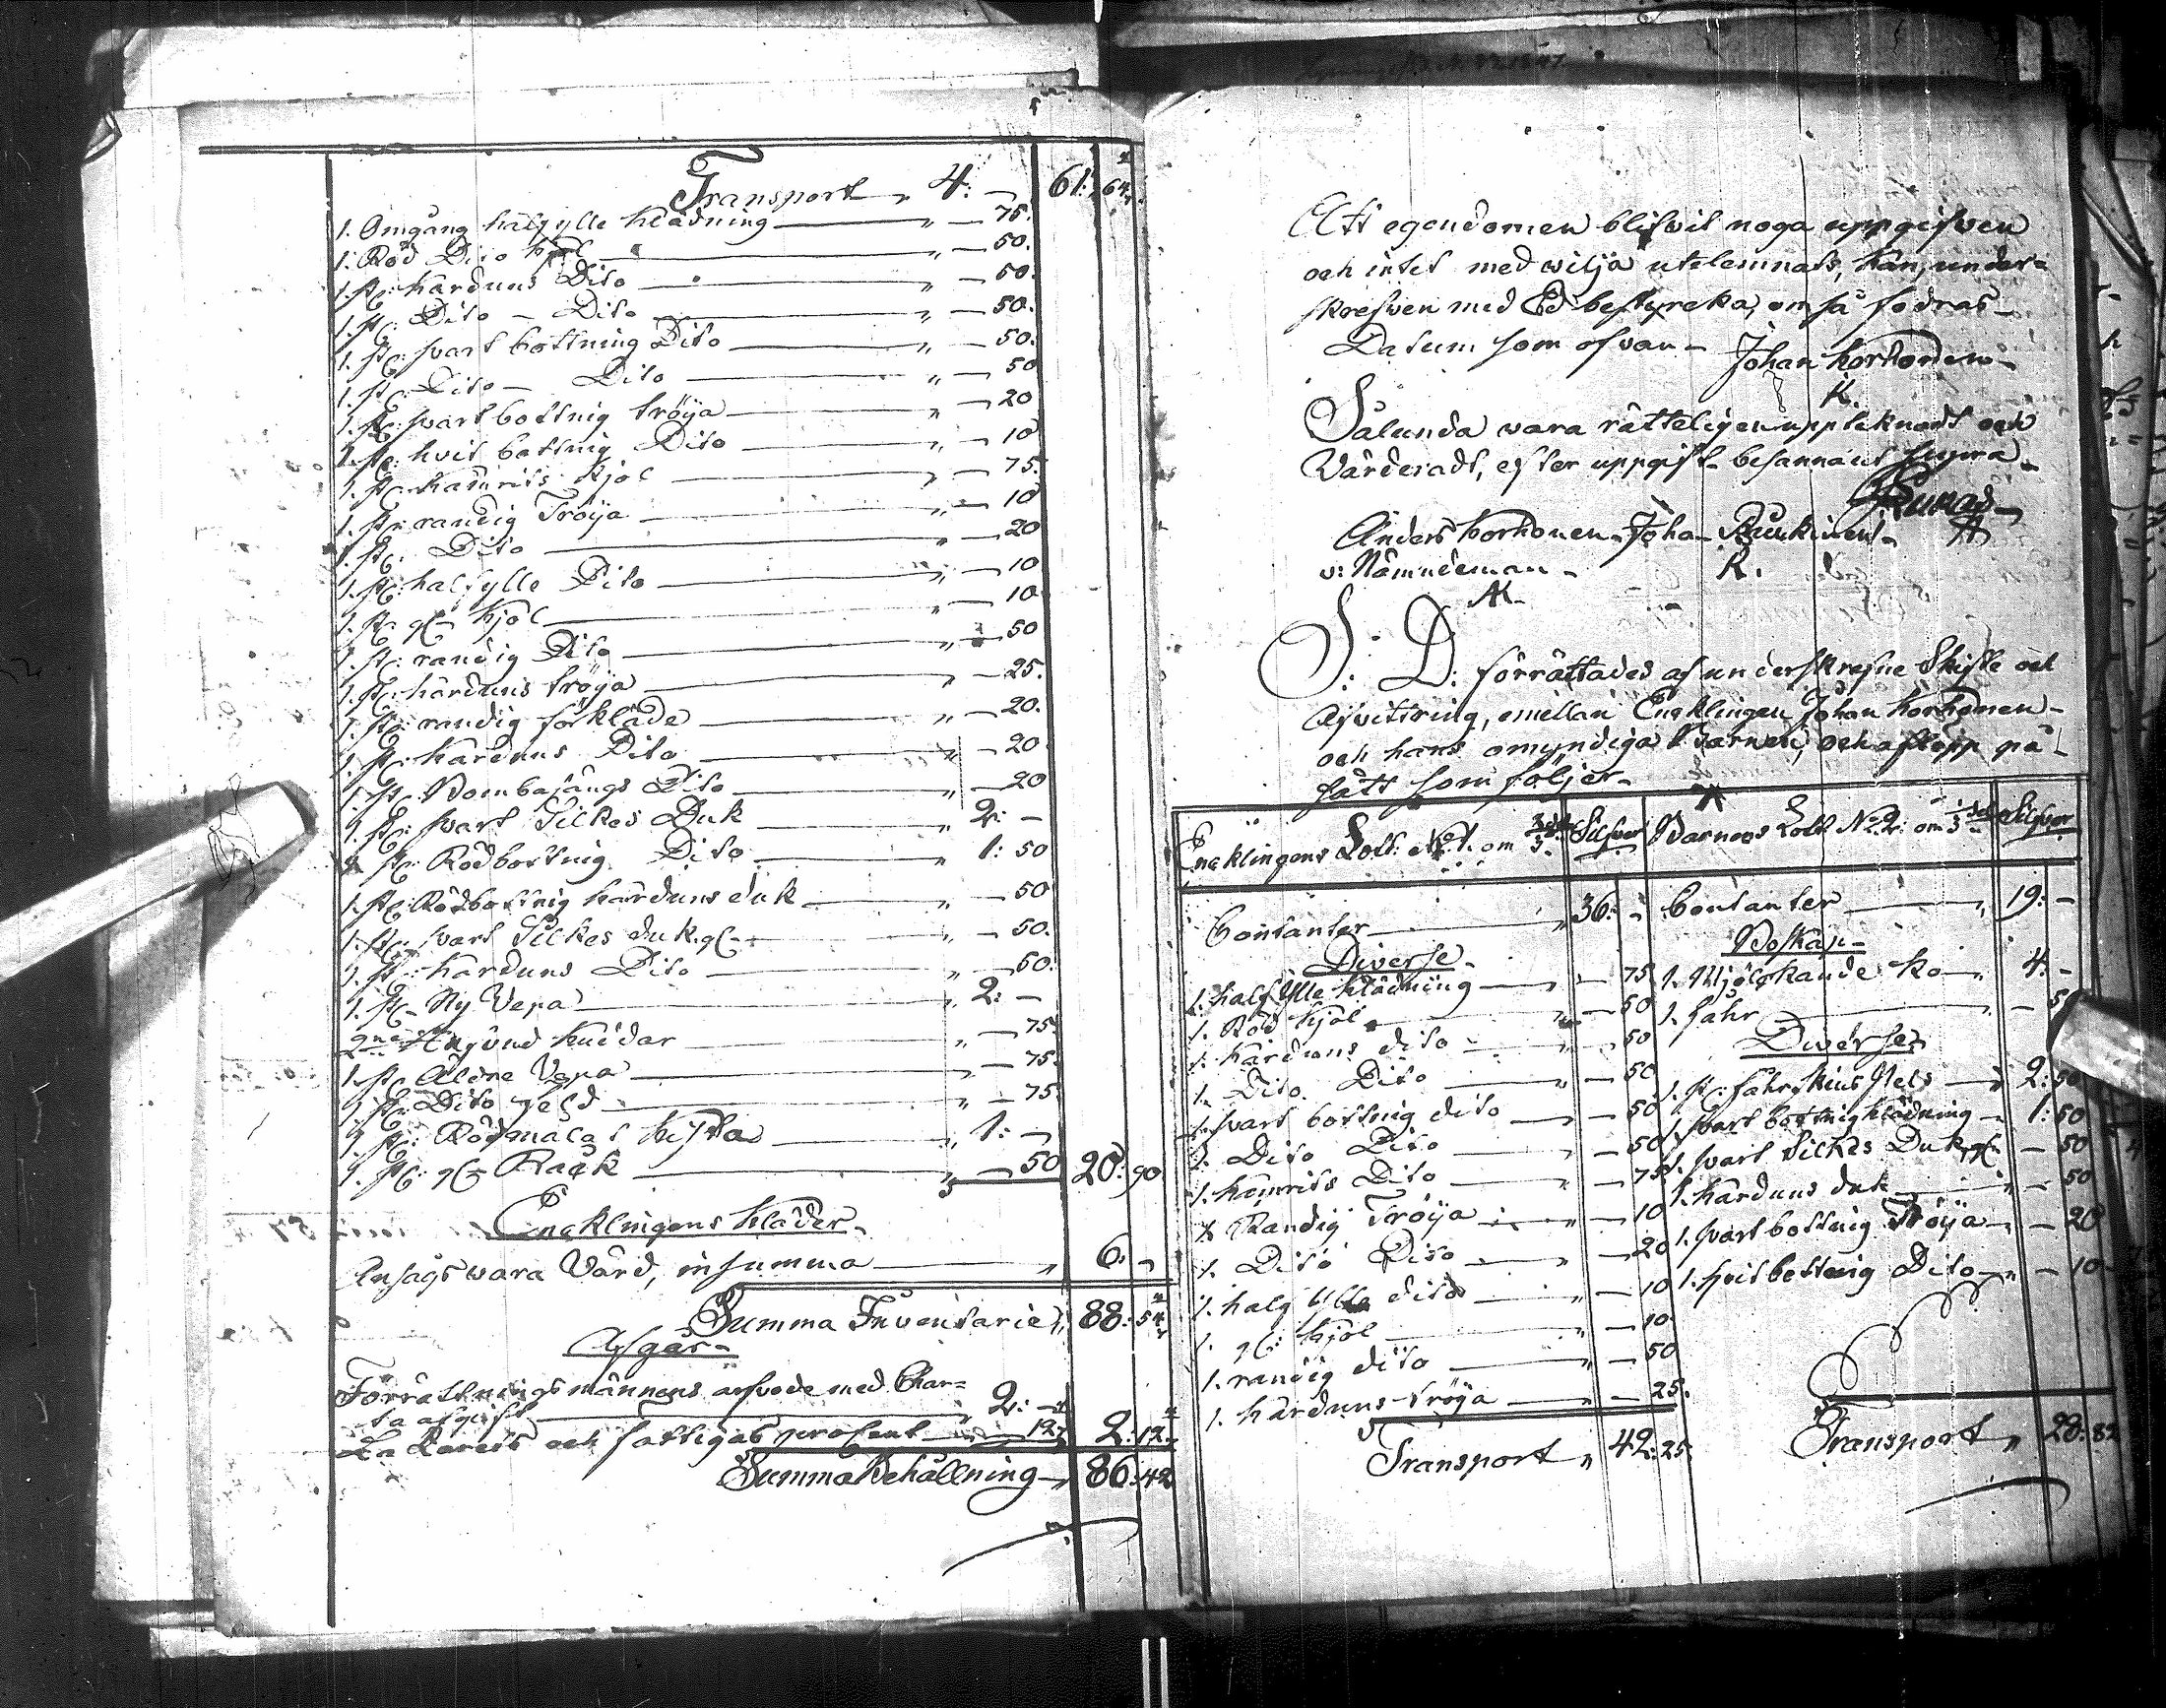 Transport „ 4: – 61: 64
1. Omgång halfylle Klädning „ – 75.
1. Röd Dito Kjol „ – 50.
1. st: Karduns Dito „ – 50.
1. st: Dito – Dito „ – 50.
1. st: svart bottning Dito „ – 50.
1. st: Dito – Dito „ – 50
1. st: svart bottnig tröya „ – 20
1. st: hvit bottnig Dito „ – 10
1. st: Kamrits Kjol „ – 75.
1. st: randig Tröya „ – 10
1. st: Dito „ – 20
1. st: halfylle Dito „ – 10
1. st: gl: Kjol „ – 10
1. st: randig Dito „ – 50
1. st: Karduns tröya „ – 25.
1. st: randig förkläde „ – 20.
1. st: Karduns Dito „ – 20
1. st: Bombasängs Dito „ – 20
1. st: svart Silkes Duk „ 2: –
1. st: Rödbottnig Dito „ 1: 50
1. st: Rödbottnig Karduns duk „ – 50
1. st: svart Silkes duk gl– „ – 50.
1. st: Karduns Dito „ – 50.
1. st– Ny Vepa „ 2: –
2ne „ – 75.
1. st Äldre Vepa „ – 75.
1. st: Dito „ – 75
1. st: Rödmålat Kista „ 1: –
1. st: gl– „ – 50 20: 90
Encklingens Kläder.
Ansågs vara Värd, in summa „ 6: –
Summa Inventarie „ 88: 54
Afgår–
Förrättningsmännens arfvode med Char=
ta afgift „ 2: –
och fattigas procent „ – 12 2: 12
Summa Behållning „ 86: 42
Att egendomen blifvit noga uppgifven
och intet med vilja utelemnats, kan, under=
skrefven med Ed bestyrcka, om så fodras–
Datum som ofvan– Johan Korhonen–
K.
Sålunda vara rätteligen upptaknadt och
Värderadt, efter uppgift– besannäs supra–
Anders Korhonen– Joha–
v: Nämndeman– R.
AK–
S: D: förrättades af underskrefne Skifte och
Afvittring, emellan Encklingen Johan Korhonen–
och hans omyndiga Barnen, och aflopp på
sätt som följer–
Encklingens Lott: No 1. om 2/3. Silfver Barnens Lott No 2: om 1/3 Silfver
Contanter „ 36: – Contanter „ 19: –
Diverse– Boskap–
1. half Ylle Klädning „ – 75 1. Mjölckande Ko „ 4: –
1. Röd Kjol „ – 50 1. fahr – 50
1. Karduns dito „ – 50 Diverse
1. Dito. Dito „ – 50 1. st: fahrskins Pels „ 2: 50
1. svart bottnig dito „ – 50 1. svart bottnig klädning „ 1: 50
1. Dito Dito „ – 50 1. svart Silkes Duk gl– – 50
1. Kamrits Dito „ – 75 1. Karduns duk „ – 50
1. Randig Tröya „ – 10 1. svart bottnig Tröya „ – 20
1. Dito Dito „ – 20 1. hvit bottnig Dito „ – 10
1. half Ylle dito „ – 10
1. gl: Kjol „ – 10
1. randig dito „ – 50
1. Karduns tröya „ – 25.
Transport „ 42: 25. Transport „ 28: 82